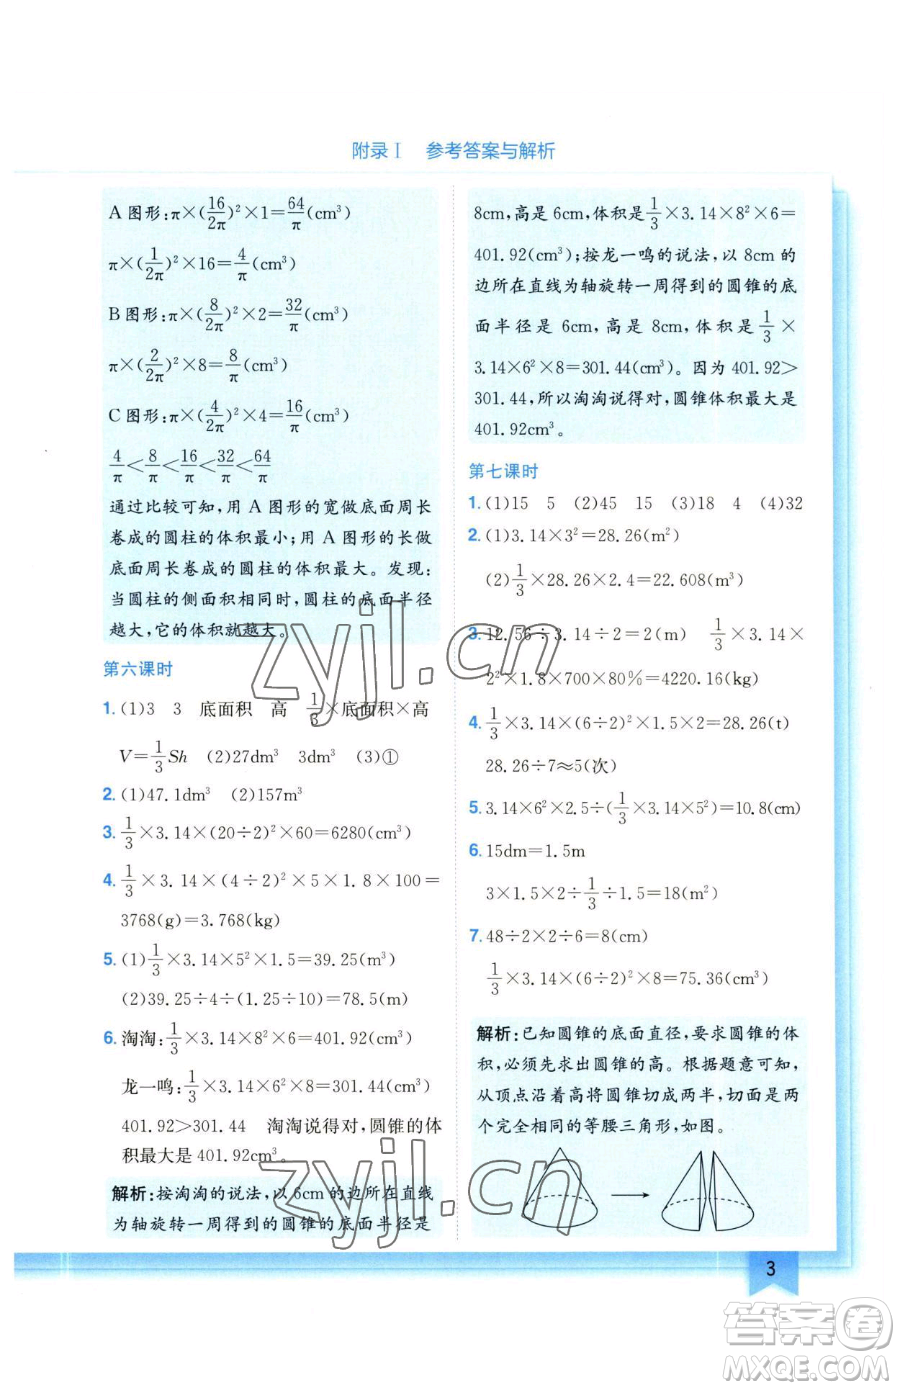 附录Ⅰ 参考答案与解析
A图形:π×(16/2π)²×1=64/π(cm³)
π×(1/2π)²×16=4/π(cm³)
B图形:π×(8/2π)²×2=32/π(cm³)
π×(2/2π)²×8=8/π(cm³)
C图形:π×(4/2π)²×4=16/π(cm³)
4/π<8/π<16/π<32/π<64/π
通过比较可知,用A图形的宽做底面周长
卷成的圆柱的体积最小;用A图形的长做
底面周长卷成的圆柱的体积最大。发现:
当圆柱的侧面积相同时,圆柱的底面半径
越大,它的体积就越大。
第六课时
1.(1)3 3 底面积 高 1/3×底面积×高
V=1/3Sh (2)27dm³ 3dm³ (3)①
2.(1)47.1dm³ (2)157m³
3.1/3×3.14×(20÷2)²×60=6280(cm³)
4.1/3×3.14×(4÷2)²×5×1.8×100=
3768(g)=3.768(kg)
5.(1)1/3×3.14×5²×1.5=39.25(m³)
(2)39.25÷4÷(1.25÷10)=78.5(m)
6.淘淘:1/3×3.14×8²×6=401.92(cm³)
龙一鸣:1/3×3.14×6²×8=301.44(cm³)
401.92>301.44 淘淘说得对,圆锥的体
积最大是401.92cm³。
解析:按淘淘的说法,以6cm的边所在直线
为轴旋转一周得到的圆锥的底面半径是
8cm,高是6cm,体积是1/3×3.14×8²×6=
401.92(cm³);按龙一鸣的说法,以8cm的
边所在直线为轴旋转一周得到的圆锥的底
面半径是6cm,高是8cm,体积是1/3×
3.14×6²×8=301.44(cm³)。因为401.92>
301.44,所以淘淘说得对,圆锥体积最大是
401.92cm³。
第七课时
1.(1)15 5 (2)45 15 (3)18 4 (4)32
2.(1)3.14×3²=28.26(m²)
(2)1/3×28.26×2.4=22.608(m³)
3.12.56÷3.14÷2=2(m) 1/3×3.14×
2²×1.8×700×80%=4220.16(kg)
4.1/3×3.14×(6÷2)²×1.5×2=28.26(t)
28.26÷7≈5(次)
5.3.14×6²×2.5÷(1/3×3.14×5²)=10.8(cm)
6.15dm=1.5m
3×1.5×2÷1/3÷1.5=18(m²)
7.48÷2×2÷6=8(cm)
1/3×3.14×(6÷2)²×8=75.36(cm³)
解析:已知圆锥的底面直径,要求圆锥的体
积,必须先求出圆锥的高。根据题意可知,
从顶点沿着高将圆锥切成两半,切面是两
个完全相同的等腰三角形,如图。
3
zyjl.cn
zyjl.cn
答案圈
MXQE.COM